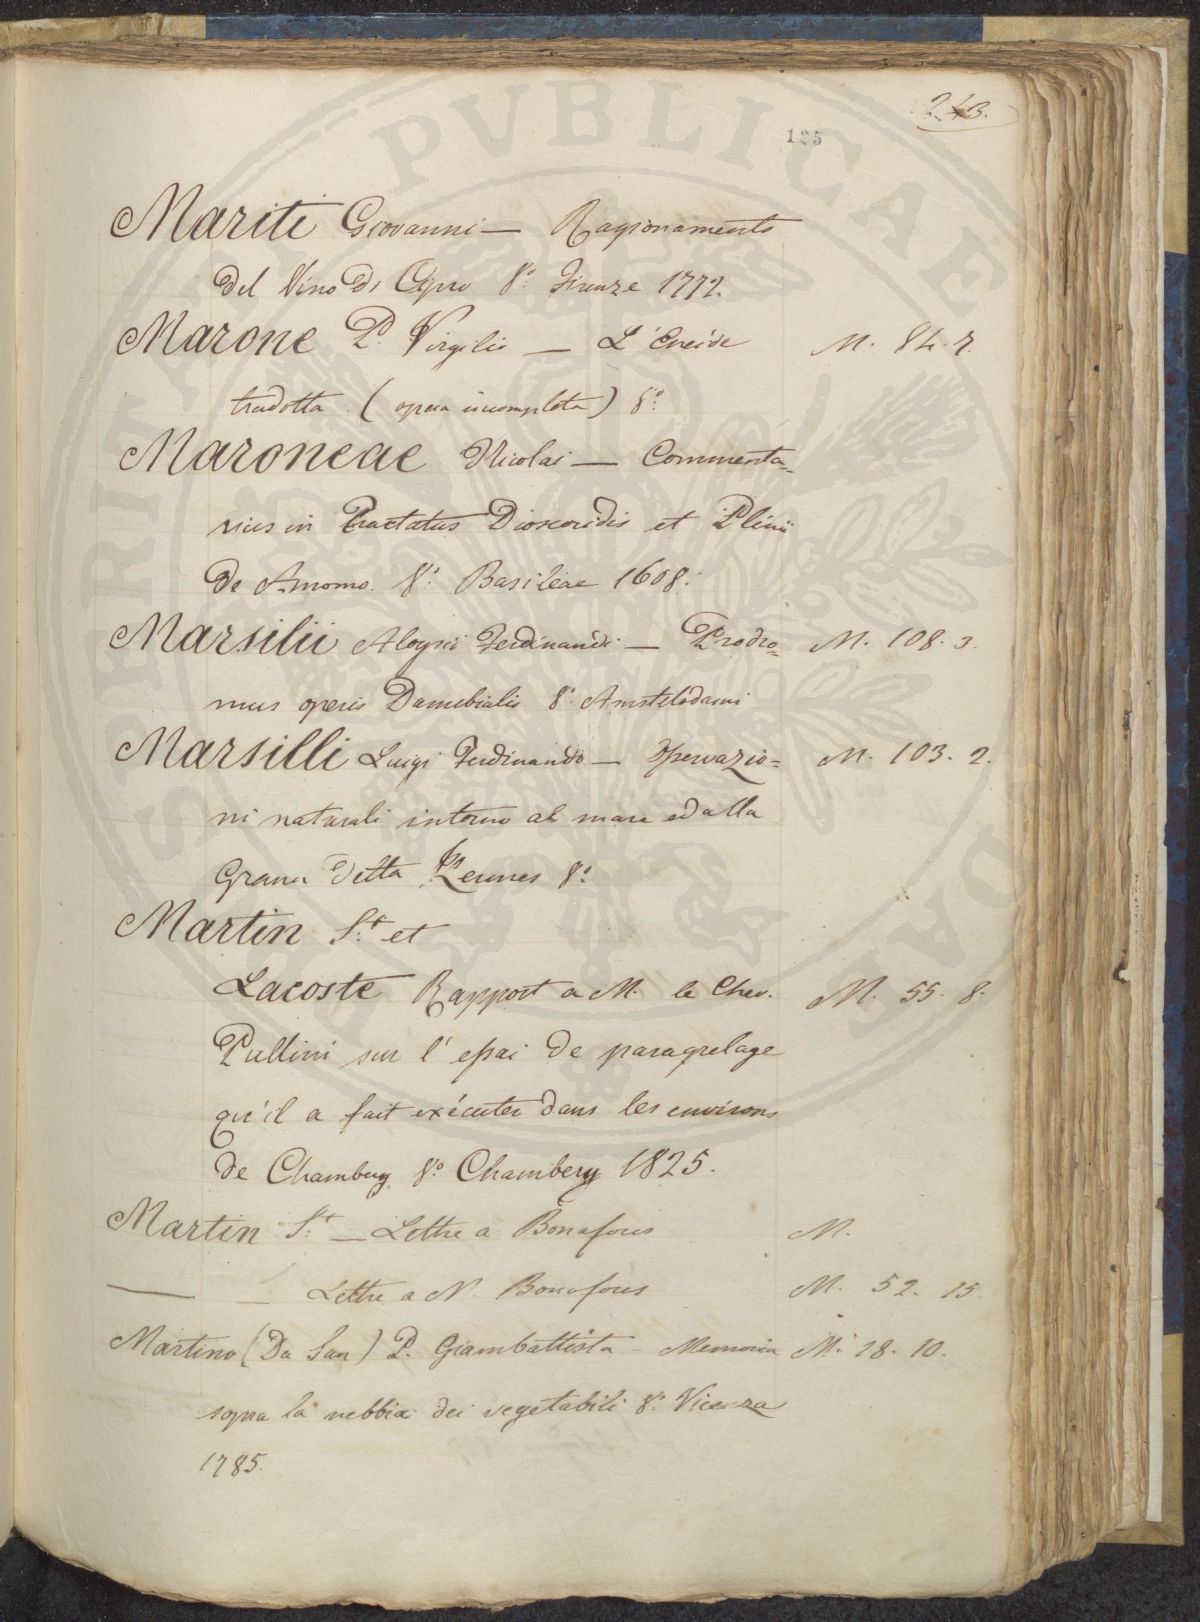 243.
125
Mariti Giovanni — Ragionamento
del Vino di Cipro 8.º Firenze 1772.
Marone P. Virgilio — L'Eneide M. 84. 7.
tradotta (opera incompleta) 8.º
Maroneae Nicolai — Commenta=
rius in Tractatus Dioscoridis et Plinii
de Amomo. 8.º Basileae 1608.
Marsilii Aloysii Ferdinandi — Prodro= M. 108. 3.
mus operis Danubialis 8.º Amstelodami
Marsilli Luigi Ferdinando — Osservazio= M. 103. 2.
ni naturali intorno al mare ed alla
Grana detta Kermes 8.º
Martin S.t et
Lacoste Rapport a M. le Chev. M. 55. 8.
Pullini sur l'essai de paragrelage
qu'il a fait exécuter dans les environs
de Chambery 8.º Chambery 1825.
Martin S.t — Lettre a Bonafous M.
— — Lettre a M. Bonafous M. 52. 15
Martino (Da San) P. Giambattista - Memoria M. 28. 10.
sopra la nebbia dei vegetabili 8.º Vicenza
1785.
PUBLICAE